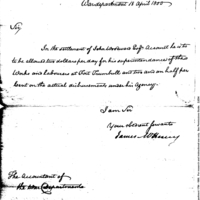 War department 15 April 1800
Sir
In the settlement of John Jackson's Esqr Account he is to
be allowed two dollars per day for his superintendance of the
Works and Laborers at Fort Trumbull and two and an half per
Cent on the actual disbursements under his Agency.
I am Sir
Your obedient servant
James McHenry
The Accountant of
the War Department